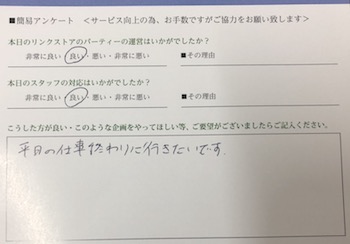 ■簡易アンケート <サービス向上の為、お手数ですがご協力をお願い致します>
本日のリンクストアのパーティーの運営はいかがでしたか?
非常に良い・良い・悪い・非常に悪い ■その理由
本日のスタッフの対応はいかがでしたか?
非常に良い・良い・悪い・非常に悪い ■その理由
こうした方が良い・このような企画をやってほしい等、ご要望がございましたらご記入ください。
平日の仕事終わりに行きたいです.